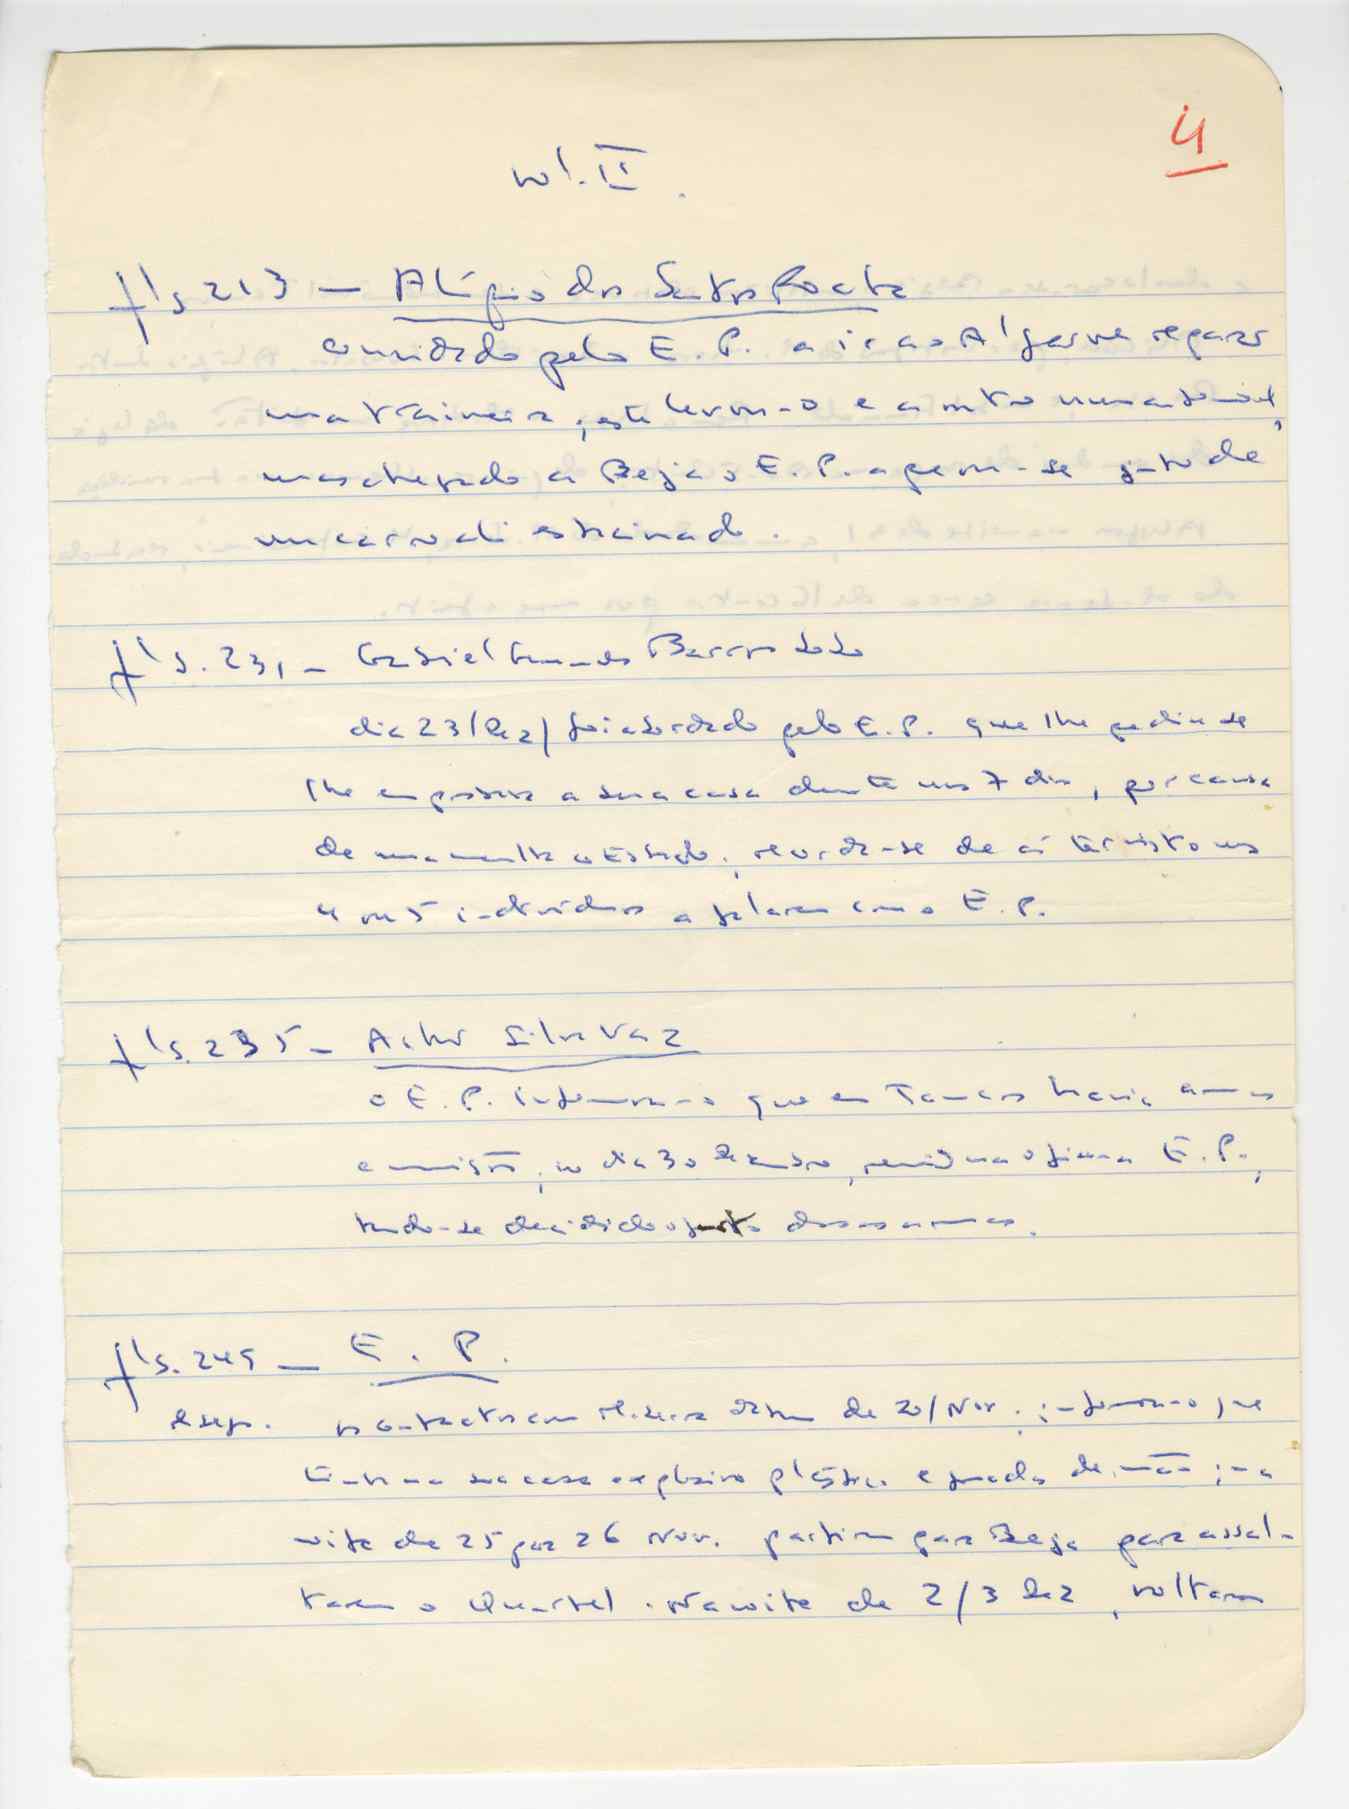 4
vol. II.
fls 213 — Alípio dos Santos Rocha
convidado pelo E. P. a ir ao Algarve reparar
uma traineira, este levou-o e a outro num automóvel,
mas chegado a Beja o E. P. apeou-se junto de
um carro ali estacionado.
fls. 231 — Gabriel Barros Lobo
dia 23/Dez/ foi abordado pelo E. P. que lhe pediu se
lhe emprestava a sua casa durante uns 7 dias, por causa
de uma multa ao Estado; recorda-se de aí ter visto uns
4 ou 5 indivíduos a falarem com o E. P.
fls. 235 — Silva Vaz
o E. P. informou-o que em Tancos havia armas
e munições, no dia 30 Dezembro, reuniu na oficina E. P.,
tendo-se decidido o furto dessas armas.
fls. 249 — E. P.
e segs. os contactos com datam de 20/Nov.; informou-o que
tinha na sua casa explosivo plástico e granadas de mão; na
noite de 25 para 26 Nov. partiram para Beja para assal-
tarem o Quartel. Na noite de 2/3 Dez, voltaram